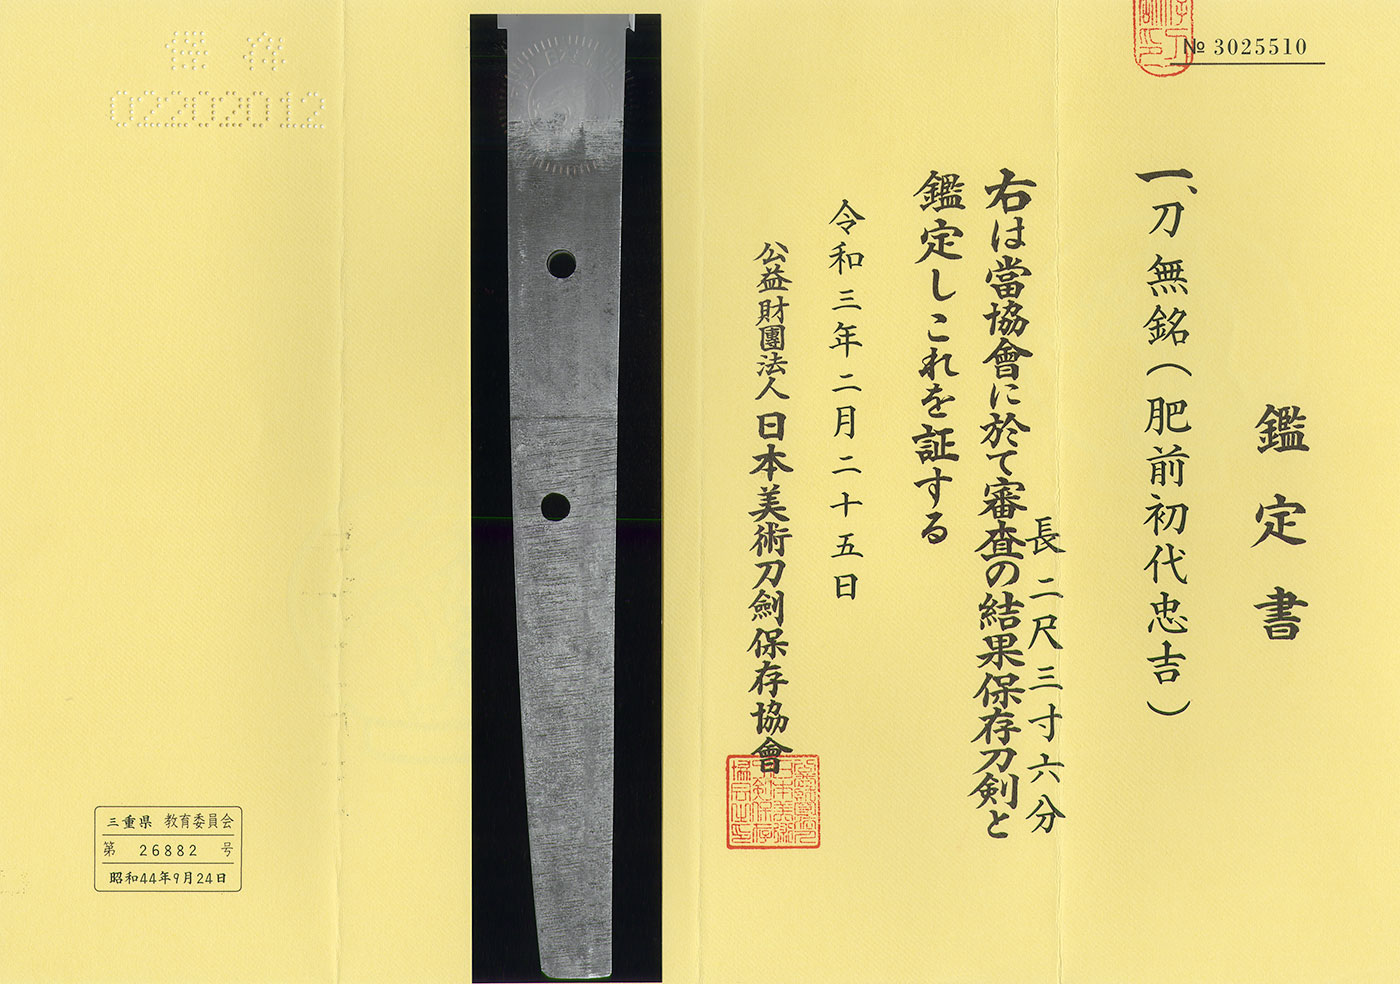 № 3025510
鑑定書
一、刀 無銘(肥前初代忠吉)
長 二尺三寸六分
右は當協會に於て審査の結果保存刀剣と
鑑定しこれを証する
令和三年二月二十五日
公益財團法人 日本美術刀劍保存協會
保存
02202012
三重県 教育委員会
第 26882 号
昭和44年9月24日